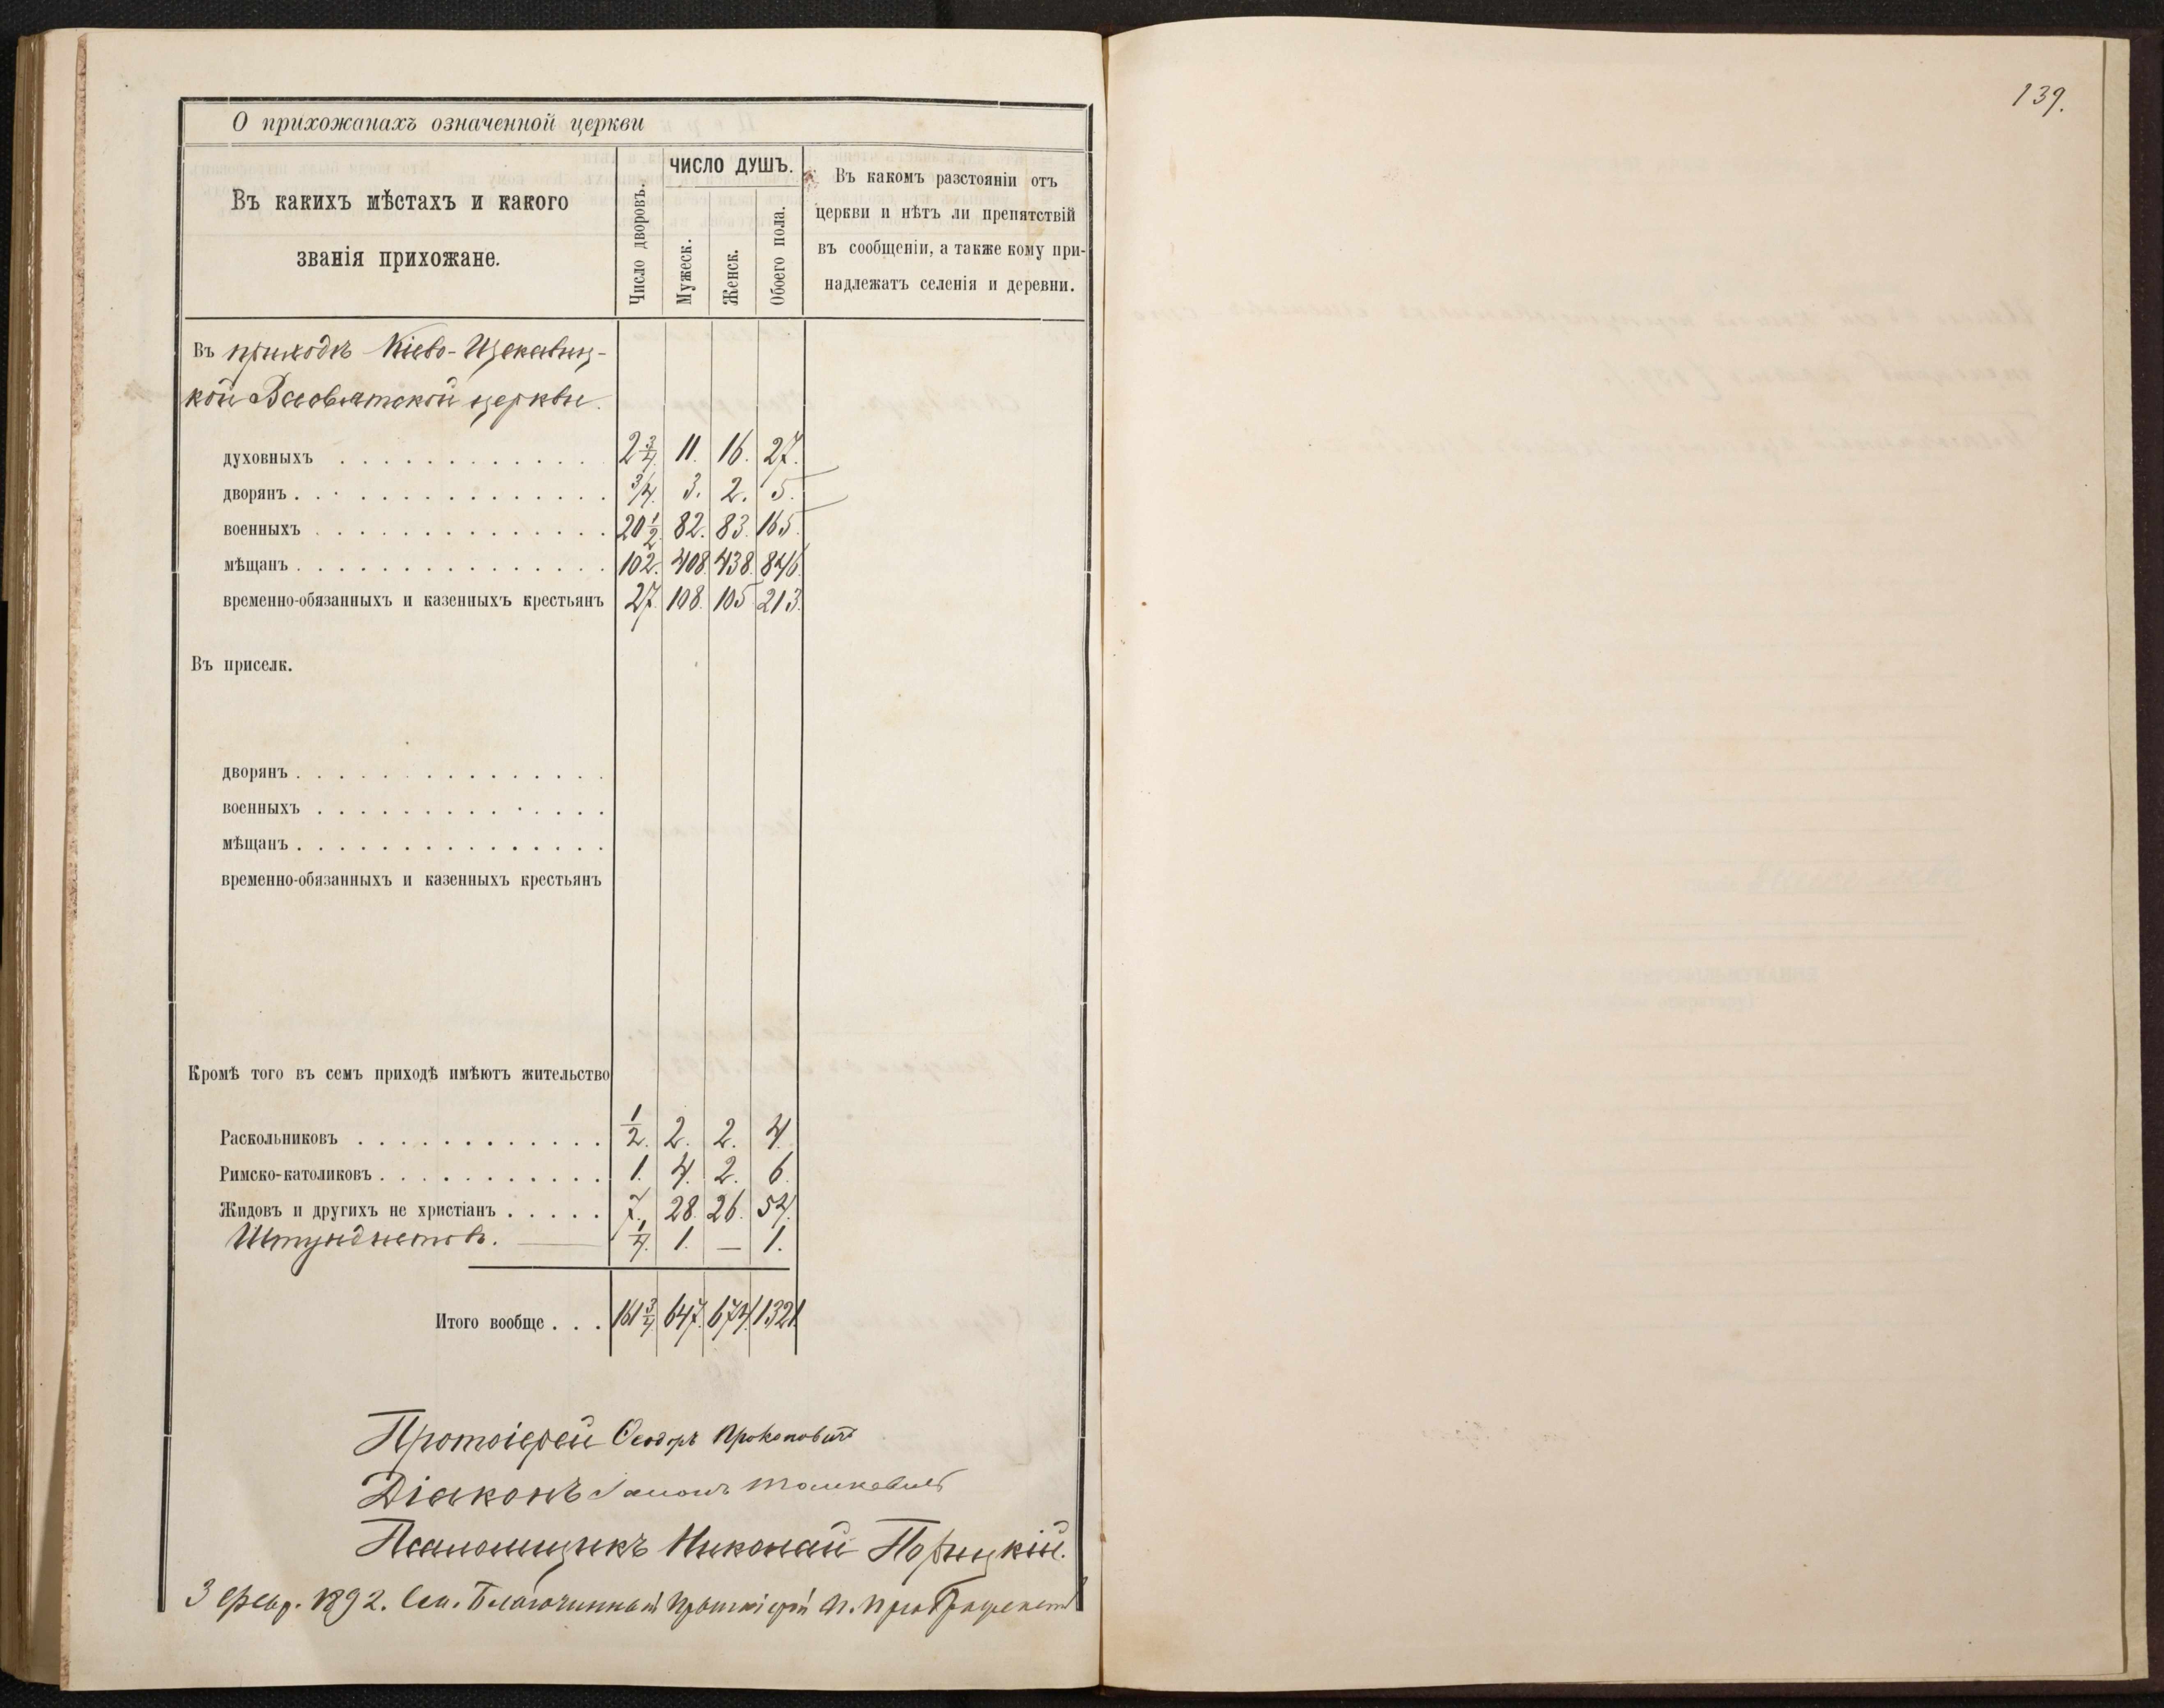 139.
О прихожанахъ означенной церкви
Въ какихъ мѣстахъ и какого
званія прихожане.
Число дворовъ.
ЧИСЛО ДУШЪ.
Мужеск.
Женск.
Обоего пола.
Въ какомъ разстояніи отъ
церкви и нѣтъ ли препятствій
въ сообщеніи, а также кому при-
надлежатъ селенія и деревни.
Въ приходѣ Кіево-Щекавиц-
кой Всесвятской церкви.
духовныхъ 2 3/4. 11. 16. 27.
дворянъ 3/4. 3. 2. 5.
военныхъ 20 1/2. 82. 83. 165.
мѣщанъ 102. 408. 438. 846.
временно-обязанныхъ и казенныхъ крестьянъ 27. 108. 105 213.
Въ приселк.
дворянъ
военныхъ
мѣщанъ
временно-обязанныхъ и казенныхъ крестьянъ
Кромѣ того въ семъ приходѣ имѣютъ жительство
Раскольниковъ 1/2. 2. 2. 4.
Римско-католиковъ 1. 4. 2. 6.
Жидовъ и другихъ не христіанъ 7. 28. 26. 54.
Штундистовъ. 1/4. 1. — 1.
Итого вообще 161 3/4 647. 674. 1321
Протоіерей Ѳеодоръ Прокоповичъ
Діаконъ
Псаломщикъ Николай Порицкій.
3 Февр. 1892. Благочинный Протоіерей П.